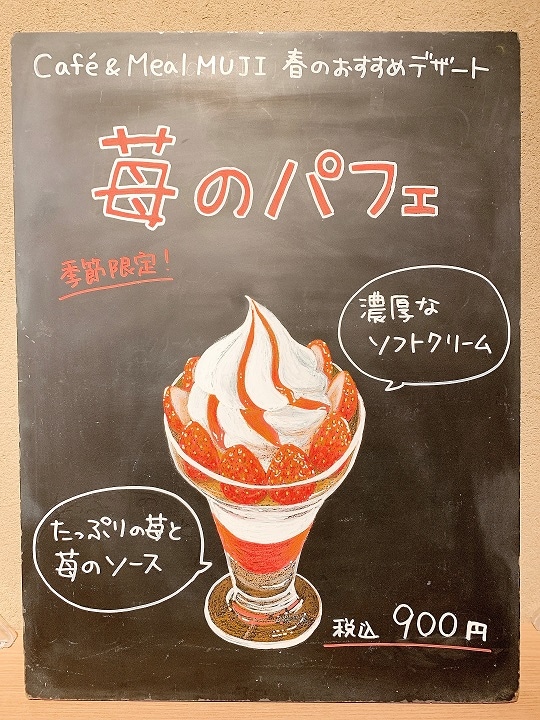 Café & Meal MUJI 春のおすすめデザート
苺のパフェ
季節限定!
濃厚な
ソフトクリーム
たっぷりの苺と
苺のソース
税込 900円